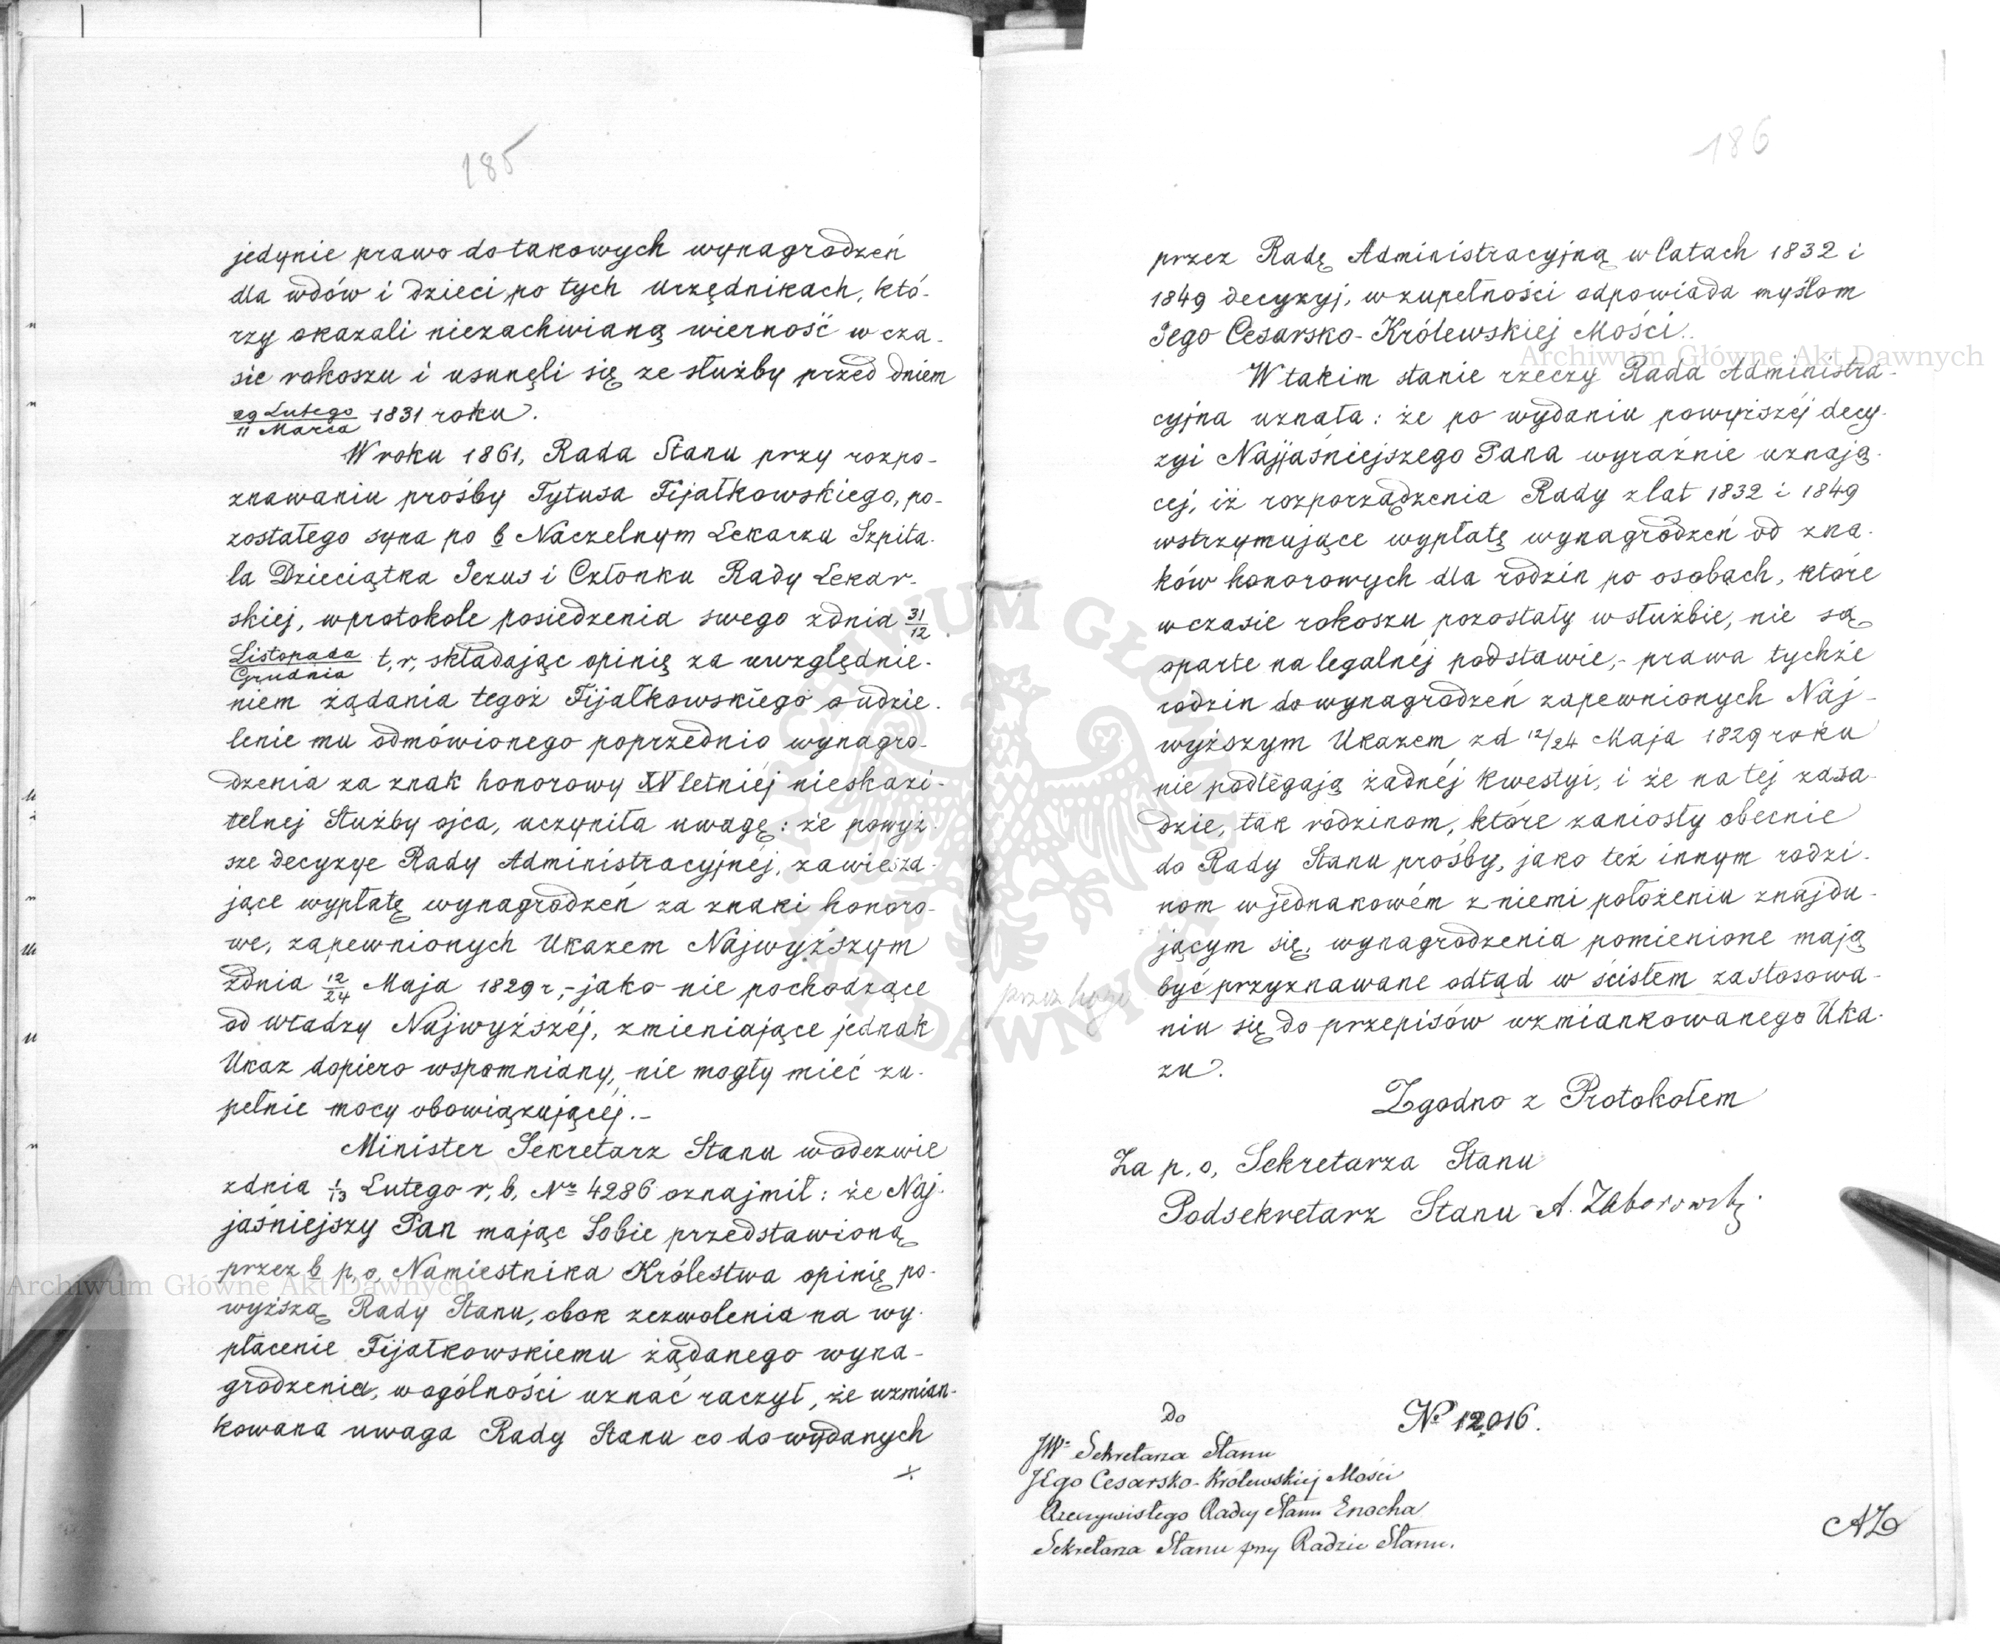 185
jedynie prawo do takowych wynagrodzeń
dla wdów i dzieci po tych urzędnikach, któ-
rzy okazali niezachwianą wierność w cza-
sie rokoszu i usunęli się ze służby przed dniem
29 Lutego/11 Marca 1831 roku.
W roku 1861, Rada Stanu przy rozpo-
znawaniu prośby Tytusa Fijałkowskiego, po-
zostałego syna po b Naczelnym Lekarzu Szpita-
la Dzieciątka Jezus i Członku Rady Lekar-
skiej, w protokole posiedzenia swego z dnia 31/12
Listopada/Grudnia t, r, składając opinię za uwzględnie-
niem żądania tegoż Fijałkowskiego o udzie-
lenie mu odmówionego poprzednio wynagro-
dzenia za znak honorowy XV letniéj nieskazi-
telnej Służby ojca, uczyniła uwagę: że powyż-
sze decyzye Rady Administracyjnéj, zawiesza-
jące wypłatę wynagrodzeń za znaki honoro-
we, zapewnionych Ukazem Najwyższym
z dnia 12/24 Maja 1829 r,- jako nie pochodzące
od władzy Najwyższéj, zmieniające jednak
Ukaz dopiero wspomniany, nie mogły mieć zu-
pełnie mocy obowiązującéj.-
Minister Sekretarz Stanu w odezwie
z dnia 1/13 Lutego r, b, Nr 4286 oznajmił: że Naj-
jaśniejszy Pan mając Sobie przedstawioną
przez b p, o, Namiestnika Królestwa opinię po-
wyższą Rady Stanu, obok zezwolenia na wy-
płacenie Fijałkowskiemu żądanego wyna-
grodzenia, w ogólności uznać raczył, że wzmian-
kowana uwaga Rady Stanu co do wydanych
186
przez Radę Administracyjną w latach 1832 i
1849 decyzyj, w zupełności odpowiada myślom
Jego Cesarsko-Królewskiej Mości.
W takim stanie rzeczy Rada Administra-
cyjna uznała: że po wydaniu powyższéj decy-
zyi Najjaśniejszego Pana wyraźnie uznają-
cej, iż rozporządzenia Rady z lat 1832 i 1849
wstrzymujące wypłatę wynagrodzeń od zna-
ków honorowych dla rodzin po osobach, które
w czasie rokoszu pozostały w służbie, nie są
oparte na legalnéj podstawie,- prawa tychże
rodzin do wynagrodzeń zapewnionych Naj-
wyższym Ukazem z d 12/24 Maja 1829 roku
nie podlegają żadnéj kwestyi, i że na tej zasa-
dzie, tak rodzinom, które zaniosły obecnie
do Rady Stanu prośby, jako też innym rodzi-
nom w jednakowém z niemi położeniu znajdu-
jącym się, wynagrodzenia pomienione mają
być przyznawane odtąd w ścisłem zastosowa-
niu się do przepisów wzmiankowanego Uka-
zu.
Zgodno z Protokołem
Za p, o, Sekretarza Stanu
Podsekretarz Stanu A. Zaborowski
Do
No 12,016.
JW. Sekretarza Stanu
JEgo Cesarsko-Królewskiej Mości
Rzeczywistego Radcy Stanu Enocha
Sekretarza Stanu przy Radzie Stanu.
AZ
Archiwum Główne Akt Dawnych
Archiwum Główne Akt Dawnych
ARCHIWUM GŁÓWNE AKT DAWNYCH